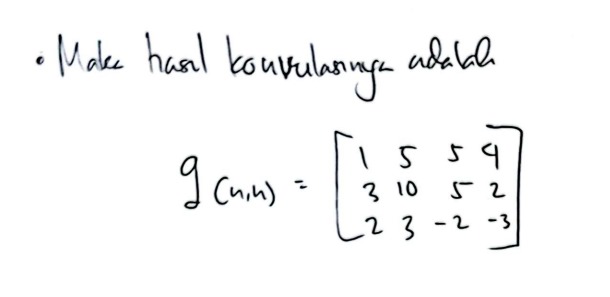 • Maka hasil konvulasinya adalah
g(n,n) = [1 5 5 4
3 10 5 2
2 3 -2 -3]